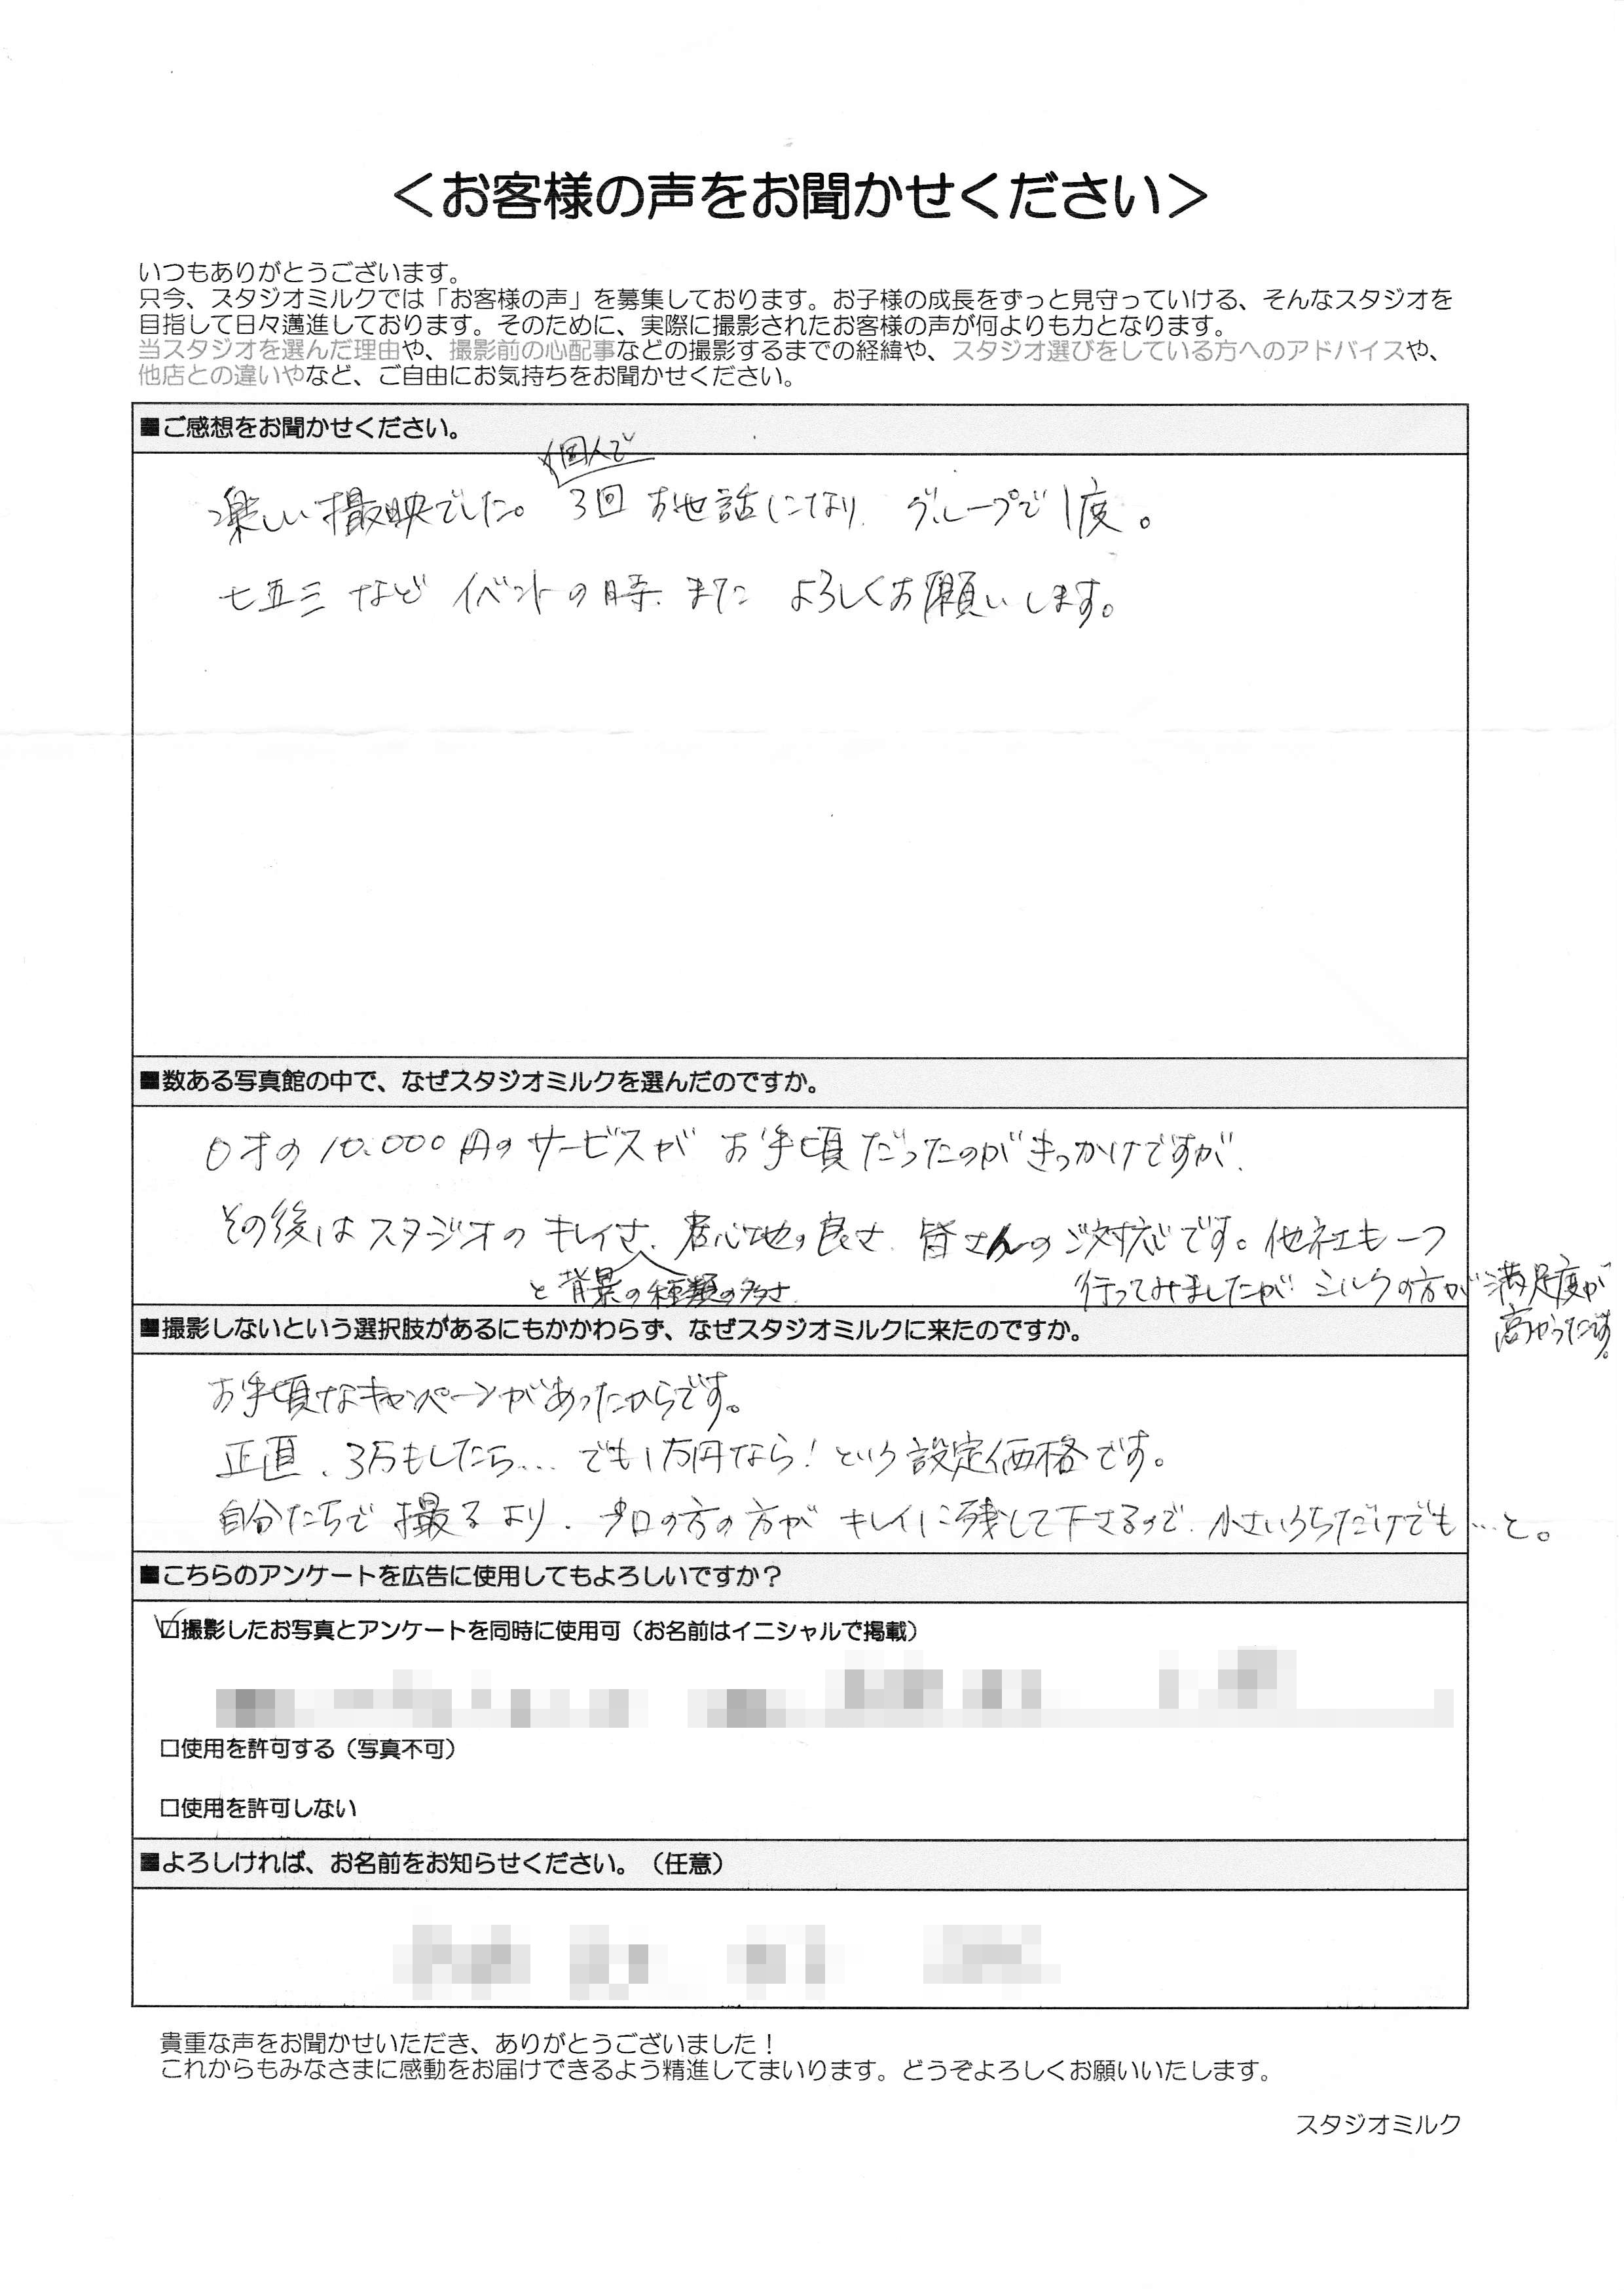 ＜お客様の声をお聞かせください＞
いつもありがとうございます。
只今、スタジオミルクでは「お客様の声」を募集しております。お子様の成長をずっと見守っていける、そんなスタジオを
目指して日々邁進しております。そのために、実際に撮影されたお客様の声が何よりも力となります。
当スタジオを選んだ理由や、撮影前の心配事などの撮影するまでの経緯や、スタジオ選びをしている方へのアドバイスや、
他店との違いやなど、ご自由にお気持ちをお聞かせください。
■ご感想をお聞かせください。
個人で
楽しい撮映でした。3回お世話になり、グループで1度。
七五三などイベントの時、またよろしくお願いします。
■数ある写真館の中で、なぜスタジオミルクを選んだのですか。
0才の10.000円のサービスがお手頃だったのがきっかけですが、
その後はスタジオのキレイさ、居心地の良さ、皆さんのご対応です。他社も一つ
と背景の種類の多さ
行ってみましたが、ミルクの方が満足度が
高かったです。
■撮影しないという選択肢があるにもかかわらず、なぜスタジオミルクに来たのですか。
お手頃なキャンペーンがあったからです。
正直、3万もしたら…でも1万円なら！という設定価格です。
自分たちで撮るより、プロの方の方がキレイに残して下さるので、小さいうちだけでも…と。
■こちらのアンケートを広告に使用してもよろしいですか？
☑撮影したお写真とアンケートを同時に使用可（お名前はイニシャルで掲載）
□使用を許可する（写真不可）
□使用を許可しない
■よろしければ、お名前をお知らせください。（任意）
貴重な声をお聞かせいただき、ありがとうございました！
これからもみなさまに感動をお届けできるよう精進してまいります。どうぞよろしくお願いいたします。
スタジオミルク